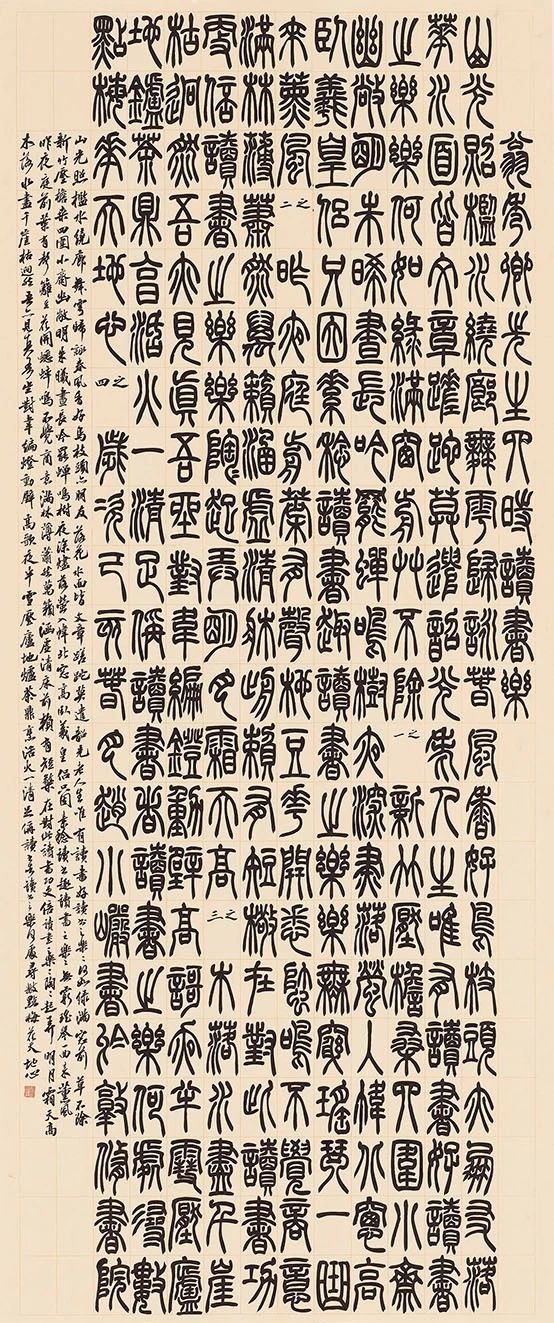 翁秀卿先生四時讀書樂
山光照檻水繞廊舞雩歸詠春風香好鳥枝頭亦朋友落
華水面皆文章蹉跎莫遣韶光老人生唯有讀書好讀書
之樂樂何如綠滿窗前艸不除 之一 新竹壓檐桑四圍小齋
幽敞明朱曦晝長吟罷蟬鳴樹夜深燼落螢入幃北窗高
臥羲皇侶只因素稔讀書趣讀書之樂樂無窮瑤琴一曲
來薰風 之二 昨夜庭前葉有聲籬豆花開蟋蟀鳴不覺商意
滿林薄蕭然萬籟涵虛清牀前賴有短檠在對此讀書功
更倍讀書之樂樂陶起弄明月霜天高 之三 木落水盡千崖
枯迥然吾亦見真吾坐對韋編鐙動壁高歌夜半雪壓廬
地鑪茶鼎烹活火一清足稱讀書者讀書之樂何處尋數
點梅華天地心 之四 歲次己亥春月趙小巖書於敦修書院
山光照檻水繞廊舞雩歸詠春風香好鳥枝頭亦朋友落花水面皆文章蹉跎莫遣韶光老人生唯有讀書好讀書之樂樂何如綠滿窗前草不除
新竹壓檐桑四圍小齋幽敞明朱曦晝長吟罷蟬鳴樹夜深燼落螢入幃北窗高臥羲皇侶只因素稔讀書趣讀書之樂樂無窮瑤琴一曲來薰風
昨夜庭前葉有聲籬豆花開蟋蟀鳴不覺商意滿林薄蕭然萬籟涵虛清床前賴有短檠在對此讀書功更倍讀書之樂樂陶陶起弄明月霜天高
木落水盡千崖枯迥然吾亦見真吾坐對韋編燈動壁高歌夜半雪壓廬地爐茶鼎烹活火一清足稱讀書者讀書之樂何處尋數點梅花天地心